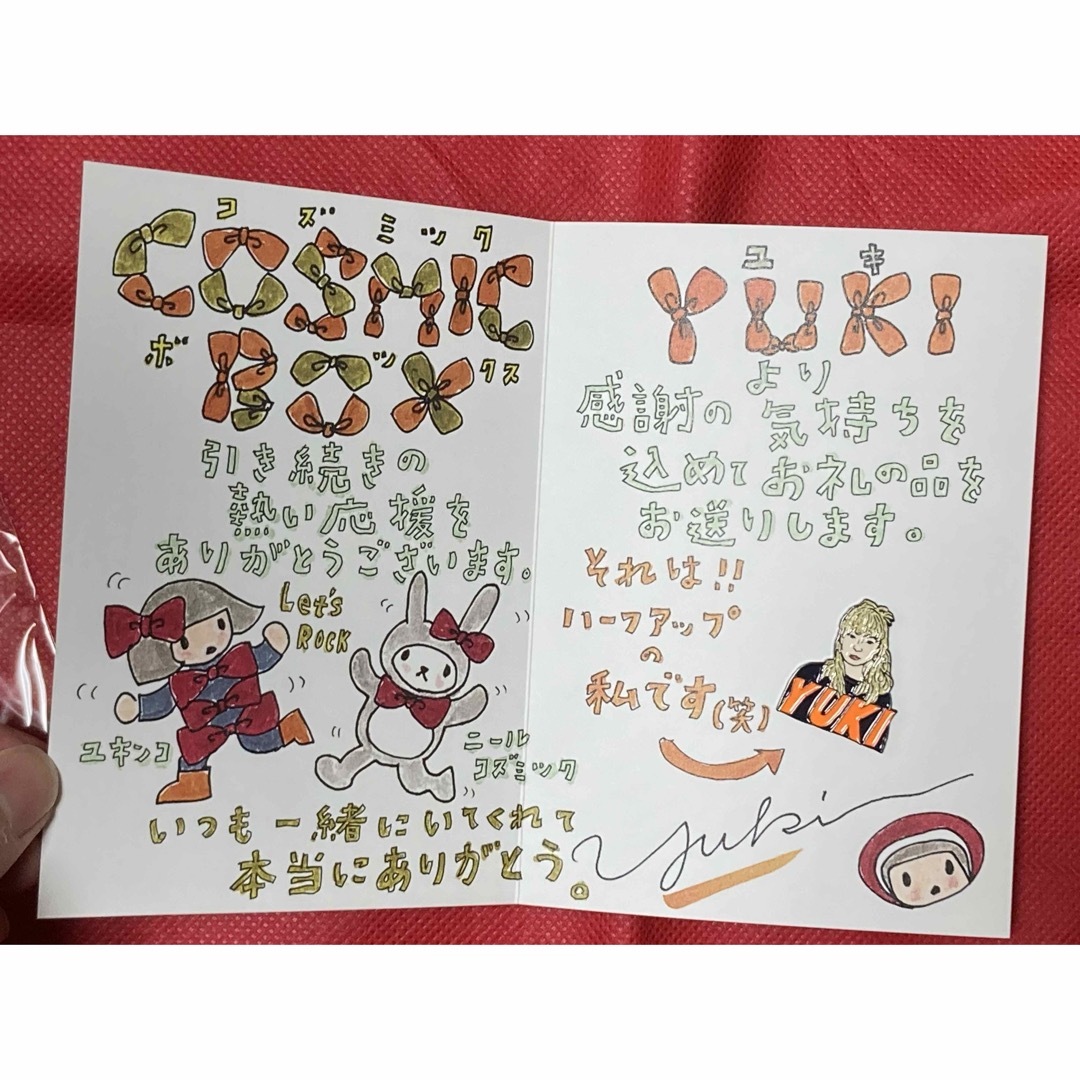 コズミック
COSMIC
ボックス
BOX
引き続きの
熱い応援を
ありがとうございます。
Let's
ROCK
ユキンコ
ニール
コズミック
いつも一緒にいてくれて
本当にありがとう。
ユキ
YUKI
より
感謝の気持ちを
込めてお礼の品を
お送りします。
それは!!
ハーフアップ
の
私です(笑)
YUKI
yuki